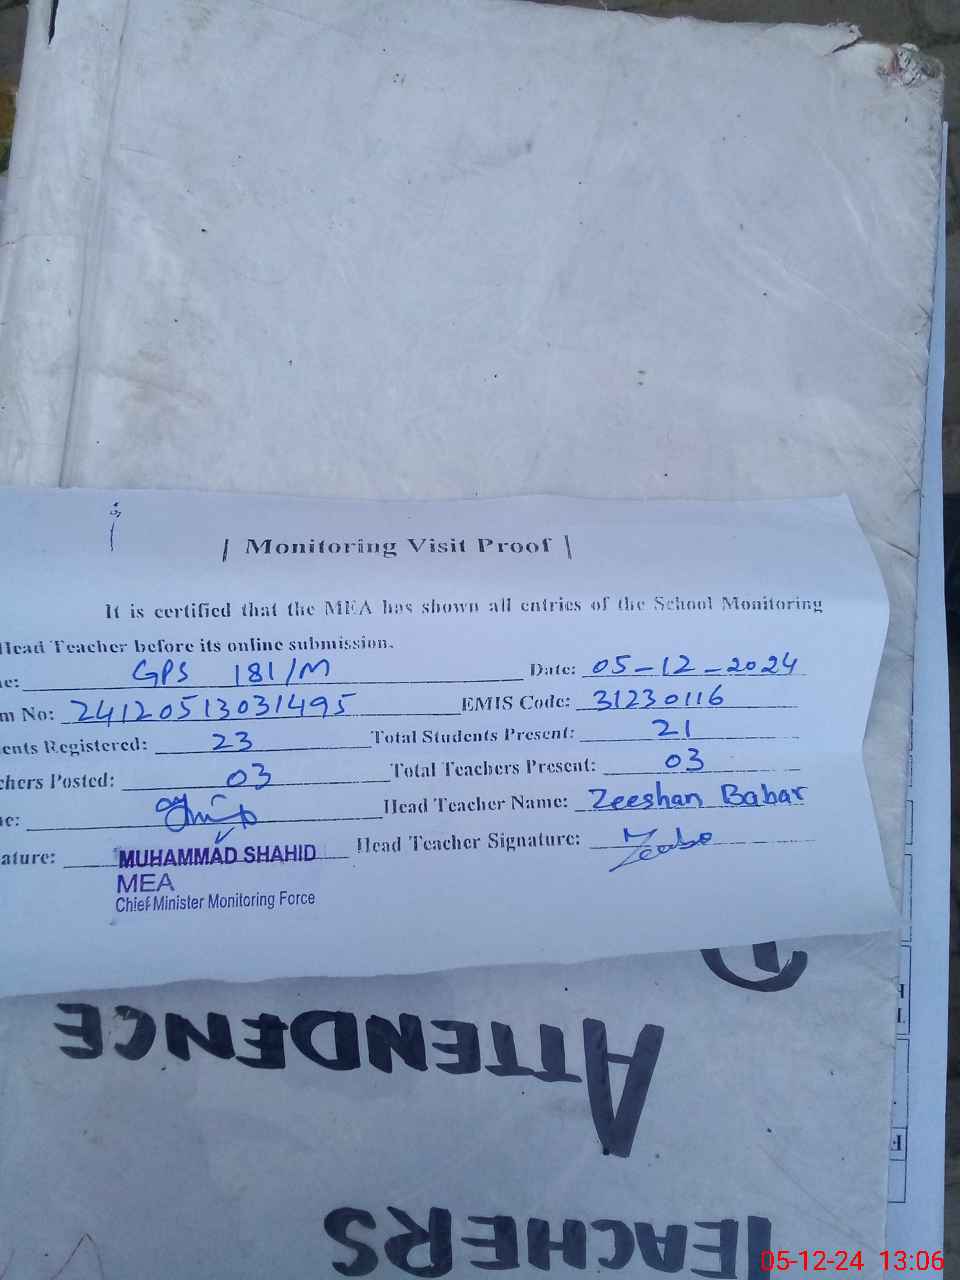 | Monitoring Visit Proof |
It is certified that the MEA has shown all entries of the School Monitoring
Head Teacher before its online submission.
e: GPS 181/M Date: 05-12-2024
m No: 24120513031495 EMIS Code: 31230116
ents Registered: 23 Total Students Present: 21
chers Posted: 03 Total Teachers Present: 03
e: Head Teacher Name: Zeeshan Babar
ature: MUHAMMAD SHAHID Head Teacher Signature:
MEA
Chief Minister Monitoring Force
TEACHERS
ATTENDENCE
05-12-24 13:06